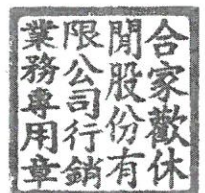 合家歡休
閒股份有
限公司行銷
業務專用章